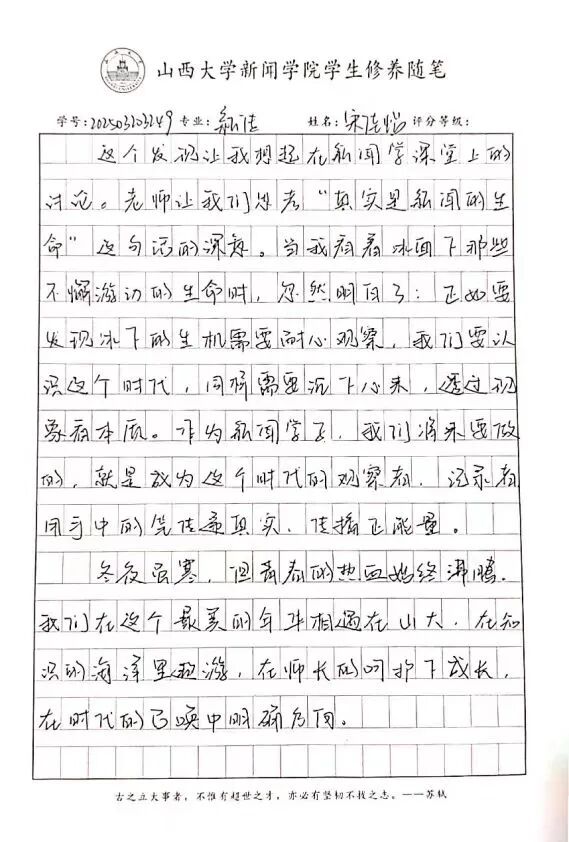 山西大学新闻学院学生修养随笔
学号:202503203249 专业: 新传 姓名: 宋佳怡 评分等级:
这个发现让我想起在新闻学课堂上的
讨论。老师让我们思考“真实是新闻的生
命”这句话的深意。当我看着冰面下那些
不懈游动的生命时,忽然明白了:正如要
发现冰下的生机需要耐心观察,我们要认
识这个时代,同样需要沉下心来,透过现
象看本质。作为新闻学子,我们将来要做
的,就是成为这个时代的观察者、记录者
用手中的笔传递真实、传播正能量。
冬夜虽寒,但青春的热血始终沸腾。
我们在这个最美的年华相遇在山大,在知
识的海洋里遨游,在师长的呵护下成长,
在时代的召唤中明确方向。
古之立大事者,不惟有超世之才,亦必有坚韧不拔之志。——苏轼